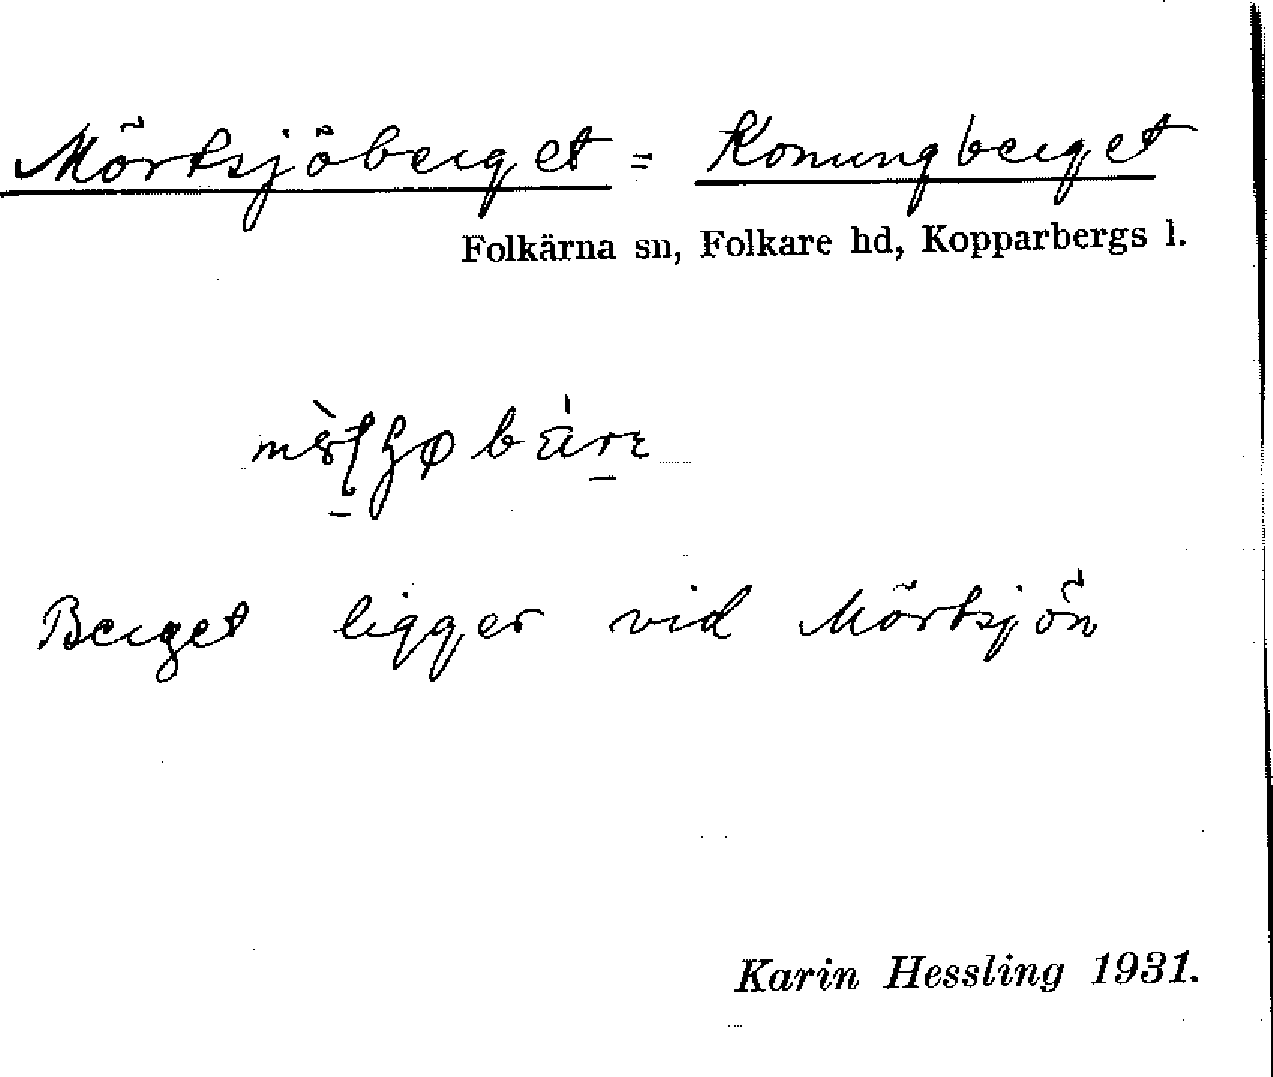 Mörtsjöberget = Konungberget
Folkärna sn, Folkare hd, Kopparbergs l.
Berget ligger vid Mörtsjön
Karin Hessling 1931.